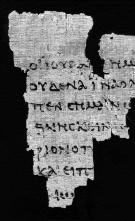 ΟΙΙΟΥΔΑ ΗΜ
ΟΥΔΕΝΑΪΝΑΟΛ
ΠΕΝCΗΜΑΙΝΩ
ΘΝΗCΚΕΙΝ
ΡΙΟΝΟΠ
ΚΑΙΕΙΠ